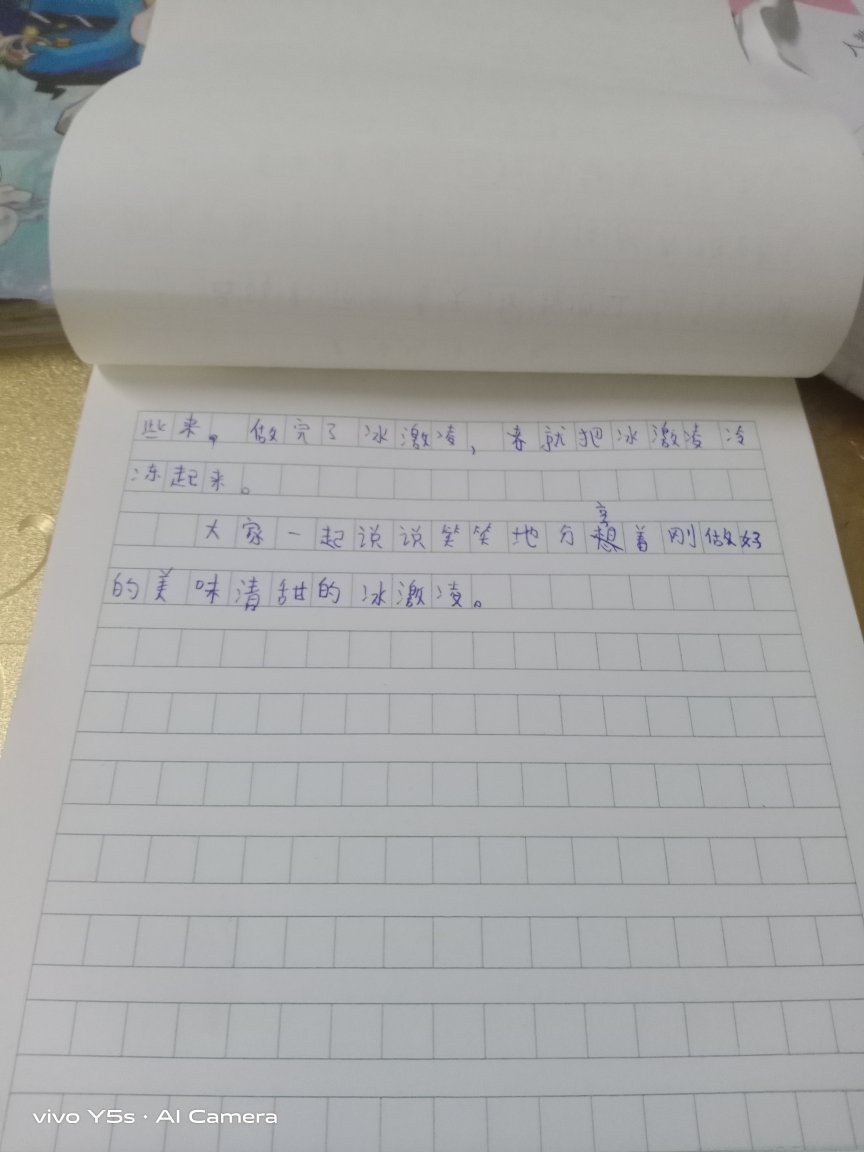 些来。做完了冰激凌，春就把冰激凌冷
冻起来。
大家一起说说笑笑地分享着刚做好
的美味清甜的冰激凌。
vivo Y5s · AI Camera